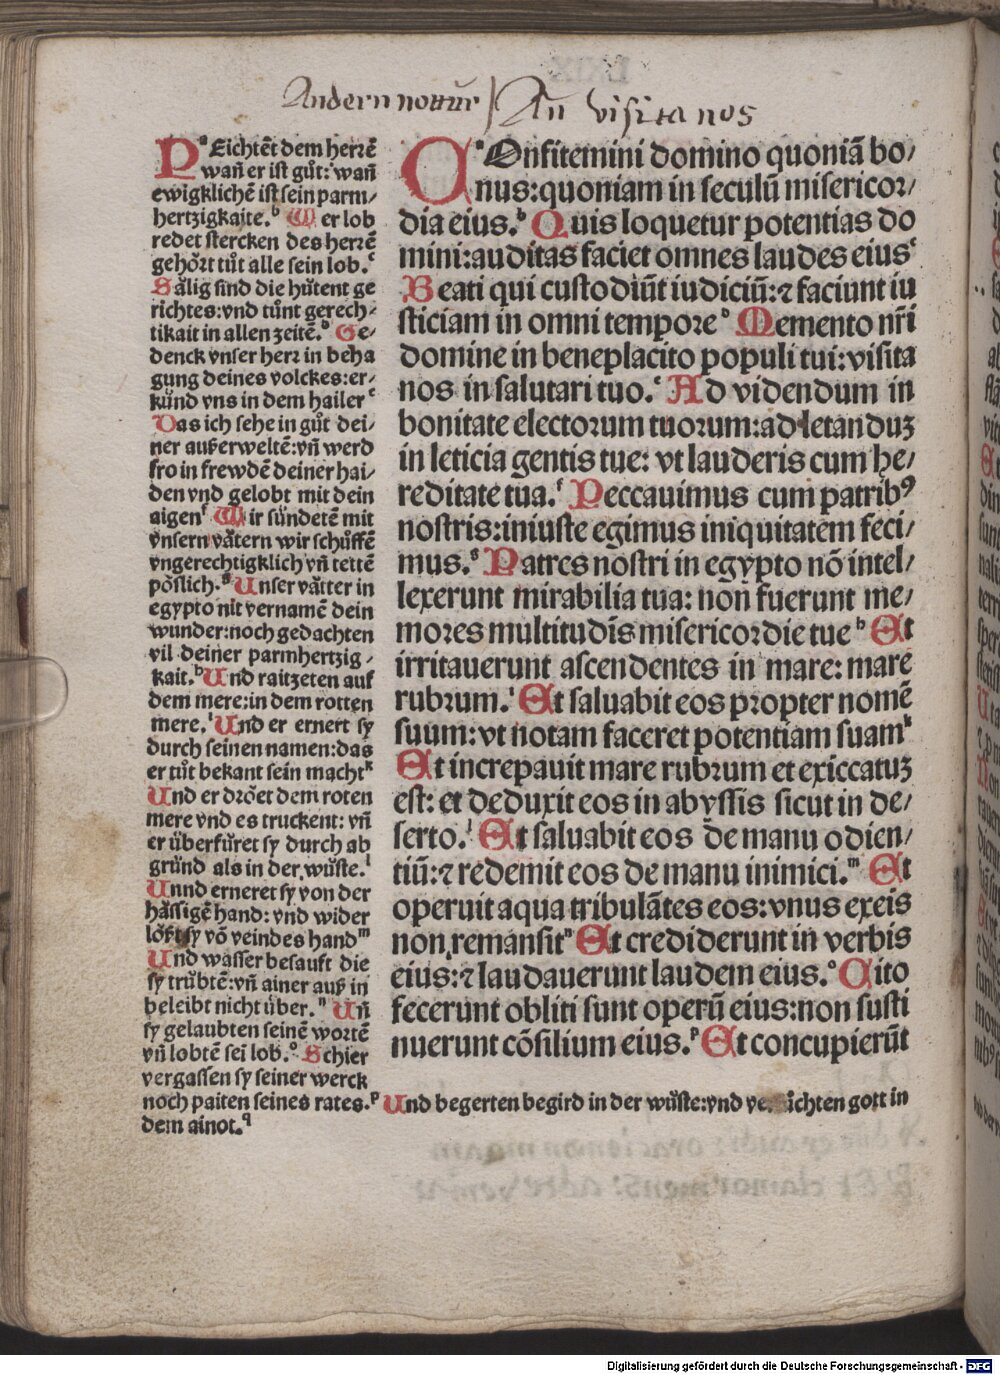 Andern nottur / An visita nos
PEichtēt dem herrē
wañ er ist gůt: wañ
ewigklichē ist sein parm⸗
hertzigkaite.ᵇ Wer lob
redet stercken des herrē
gehört tůt alle sein lob.ᶜ
Sälig sind die hütent ge
richtes: vnd tůnt gerech⸗
tikait in allen zeitē.ᵈ Ge⸗
denck vnser herr in beha
gung deines volckes: er⸗
künd vns in dem hailerᵉ
Das ich sehe in gůt dei⸗
ner außerweltē: vñ werd
fro in frewdē deiner hai⸗
den vnd gelobt mit dein
aigenᶠ Wir sündetē mit
vnsern vätern wir schůffē
vngerechtigklich vñ tettē
pöslich.ᵍ Unser vätter in
egypto nit vernamē dein
wunder: noch gedachten
vil deiner parmhertzig⸗
kait.ʰ Und raitzeten auf
dem mere: in dem rotten
mere.ⁱ Und er ernert sy
durch seinen namen: das
er tůt bekant sein machtᵏ
Und er dröet dem roten
mere vnd es truckent: vñ
er überfůret sy durch ab
gründ als in der wůste.ˡ
Unnd erneret sy von der
hässigē hand: vnd wider
lößt sy vō veindes handᵐ
Und wasser besauft die
sy trůbtē: vñ ainer auß in
beleibt nicht über.ⁿ Uñ
sy gelaubten seinē wortē
vñ lobtē sei lob.ᵒ Schier
vergassen sy seiner werck
noch paiten seines rates.ᵖ Und begerten begird in der wůste: vnd ichten gott in
dem ainot.ᑫ
COnfitemini domino quoniā bo⸗
nus: quoniam in seculū misericor⸗
dia eius.ᵇ Quis loquetur potentias do
mini: auditas faciet omnes laudes eiusᶜ
Beati qui custodiūt iudiciū: ⁊ faciunt iu
sticiam in omni temporeᵈ Memento nr̄i
domine in beneplacito populi tui: visita
nos in salutari tuo.ᵉ Ad videndum in
bonitate electorum tuorum: ad letanduꝫ
in leticia gentis tue: vt lauderis cum he⸗
reditate tua.ᶠ Peccauimus cum patribꝰ
nostris: iniuste egimus iniquitatem feci⸗
mus.ᵍ Patres nostri in egypto nō intel⸗
lexerunt mirabilia tua: non fuerunt me⸗
mores multitudīs misericordie tueʰ Et
irritauerunt ascendentes in mare: mare
rubrum.ⁱ Et saluabit eos propter nomē
suum: vt notam faceret potentiam suamᵏ
Et increpauit mare rubrum et exiccatuꝫ
est: et deduxit eos in abyssis sicut in de⸗
serto.ˡ Et saluabit eos de manu odien⸗
tiū: ⁊ redemit eos de manu inimici.ᵐ Et
operuit aqua tribulātes eos: vnus ex eis
non remansitⁿ Et crediderunt in verbis
eius: ⁊ laudauerunt laudem eius.ᵒ Cito
fecerunt obliti sunt operū eius: non susti
nuerunt cōsilium eius.ᵖ Et concupierūt
Digitalisierung gefördert durch die Deutsche Forschungsgemeinschaft - DFG